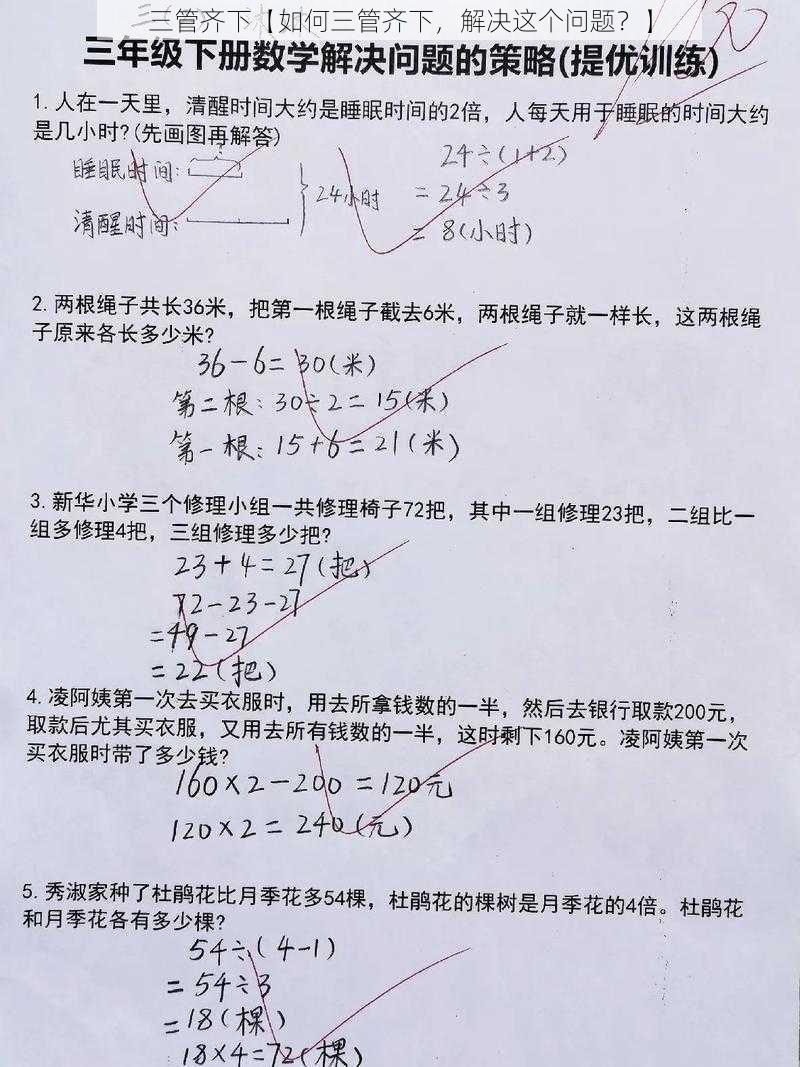 三管齐下【如何三管齐下，解决这个问题？】
三年级下册数学解决问题的策略(提优训练)
1.人在一天里，清醒时间大约是睡眠时间的2倍，人每天用于睡眠的时间大约
是几小时?(先画图再解答)
睡眠时间:
?
24小时
清醒时间:
24÷(1+2)
=24÷3
=8(小时)
2.两根绳子共长36米，把第一根绳子截去6米，两根绳子就一样长，这两根绳
子原来各长多少米?
36-6=30(米)
第二根:30÷2=15(米)
第一根:15+6=21(米)
3.新华小学三个修理小组一共修理椅子72把，其中一组修理23把，二组比一
组多修理4把，三组修理多少把?
23+4=27(把)
72-23-27
=49-27
=22(把)
4.凌阿姨第一次去买衣服时，用去所拿钱数的一半，然后去银行取款200元，
取款后尤其买衣服，又用去所有钱数的一半，这时剩下160元。凌阿姨第一次
买衣服时带了多少钱?
160×2-200=120元
120×2=240(元)
5.秀淑家种了杜鹃花比月季花多54棵，杜鹃花的棵树是月季花的4倍。杜鹃花
和月季花各有多少棵?
54÷(4-1)
=54÷3
=18(棵)
18×4=72(棵)